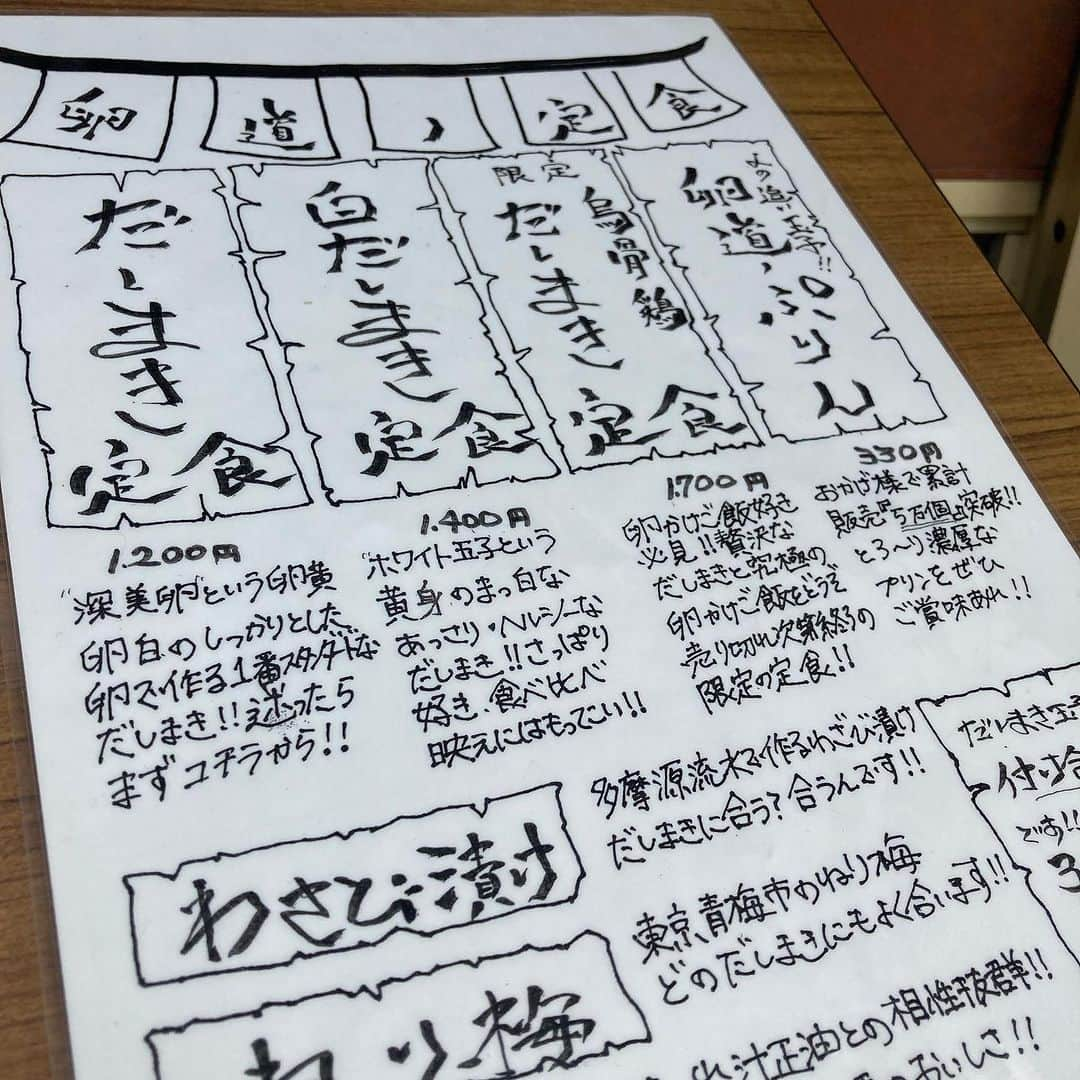 卵道ノ定食
だしまき
定食
1.200円
"深美卵"という卵黄
卵白のしっかりとした
卵で作る1番スタンダードな
だしまき!!迷ったら
まずコチラから!!
白だしまき
定食
1.400円
"ホワイト玉子という
黄身のまっ白な
あっさり・ヘルシーな
だしまき!!さっぱり
好き、食べ比べ
映えにはもってこい!!
限定
烏骨鶏
だしまき
定食
1.700円
卵かけご飯好き
必見!!贅沢な
だしまきと究極の
卵かけご飯をどうぞ
売り切れ次第終了の
限定の定食!!
卵道ノぷりん
330円
おかげ様で累計
販売"5万個"突破!!
とろ〜り濃厚な
プリンをぜひ
ご賞味あれ!!
わさび漬け
多摩源流水で作るわさび漬け
だしまきに合う?合うんです!!
ねり梅
東京、青梅市のねり梅
どのだしまきにもよく合います!!
だしまき玉
付け合
です!!
3
出汁正油との相性抜群!!
おいしさ!!